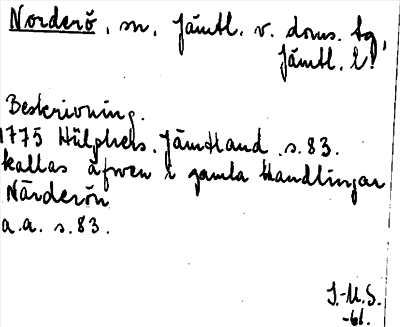 Norderö, sn, Jämtl. v. doms. tg,
Jämtl. l.
Beskrivning.
1775 Hülphers. Jämtland s. 83.
kallas äfwen i gamla Handlingar
Närderön
a.a. s. 83.
J.-M.S.
-61.